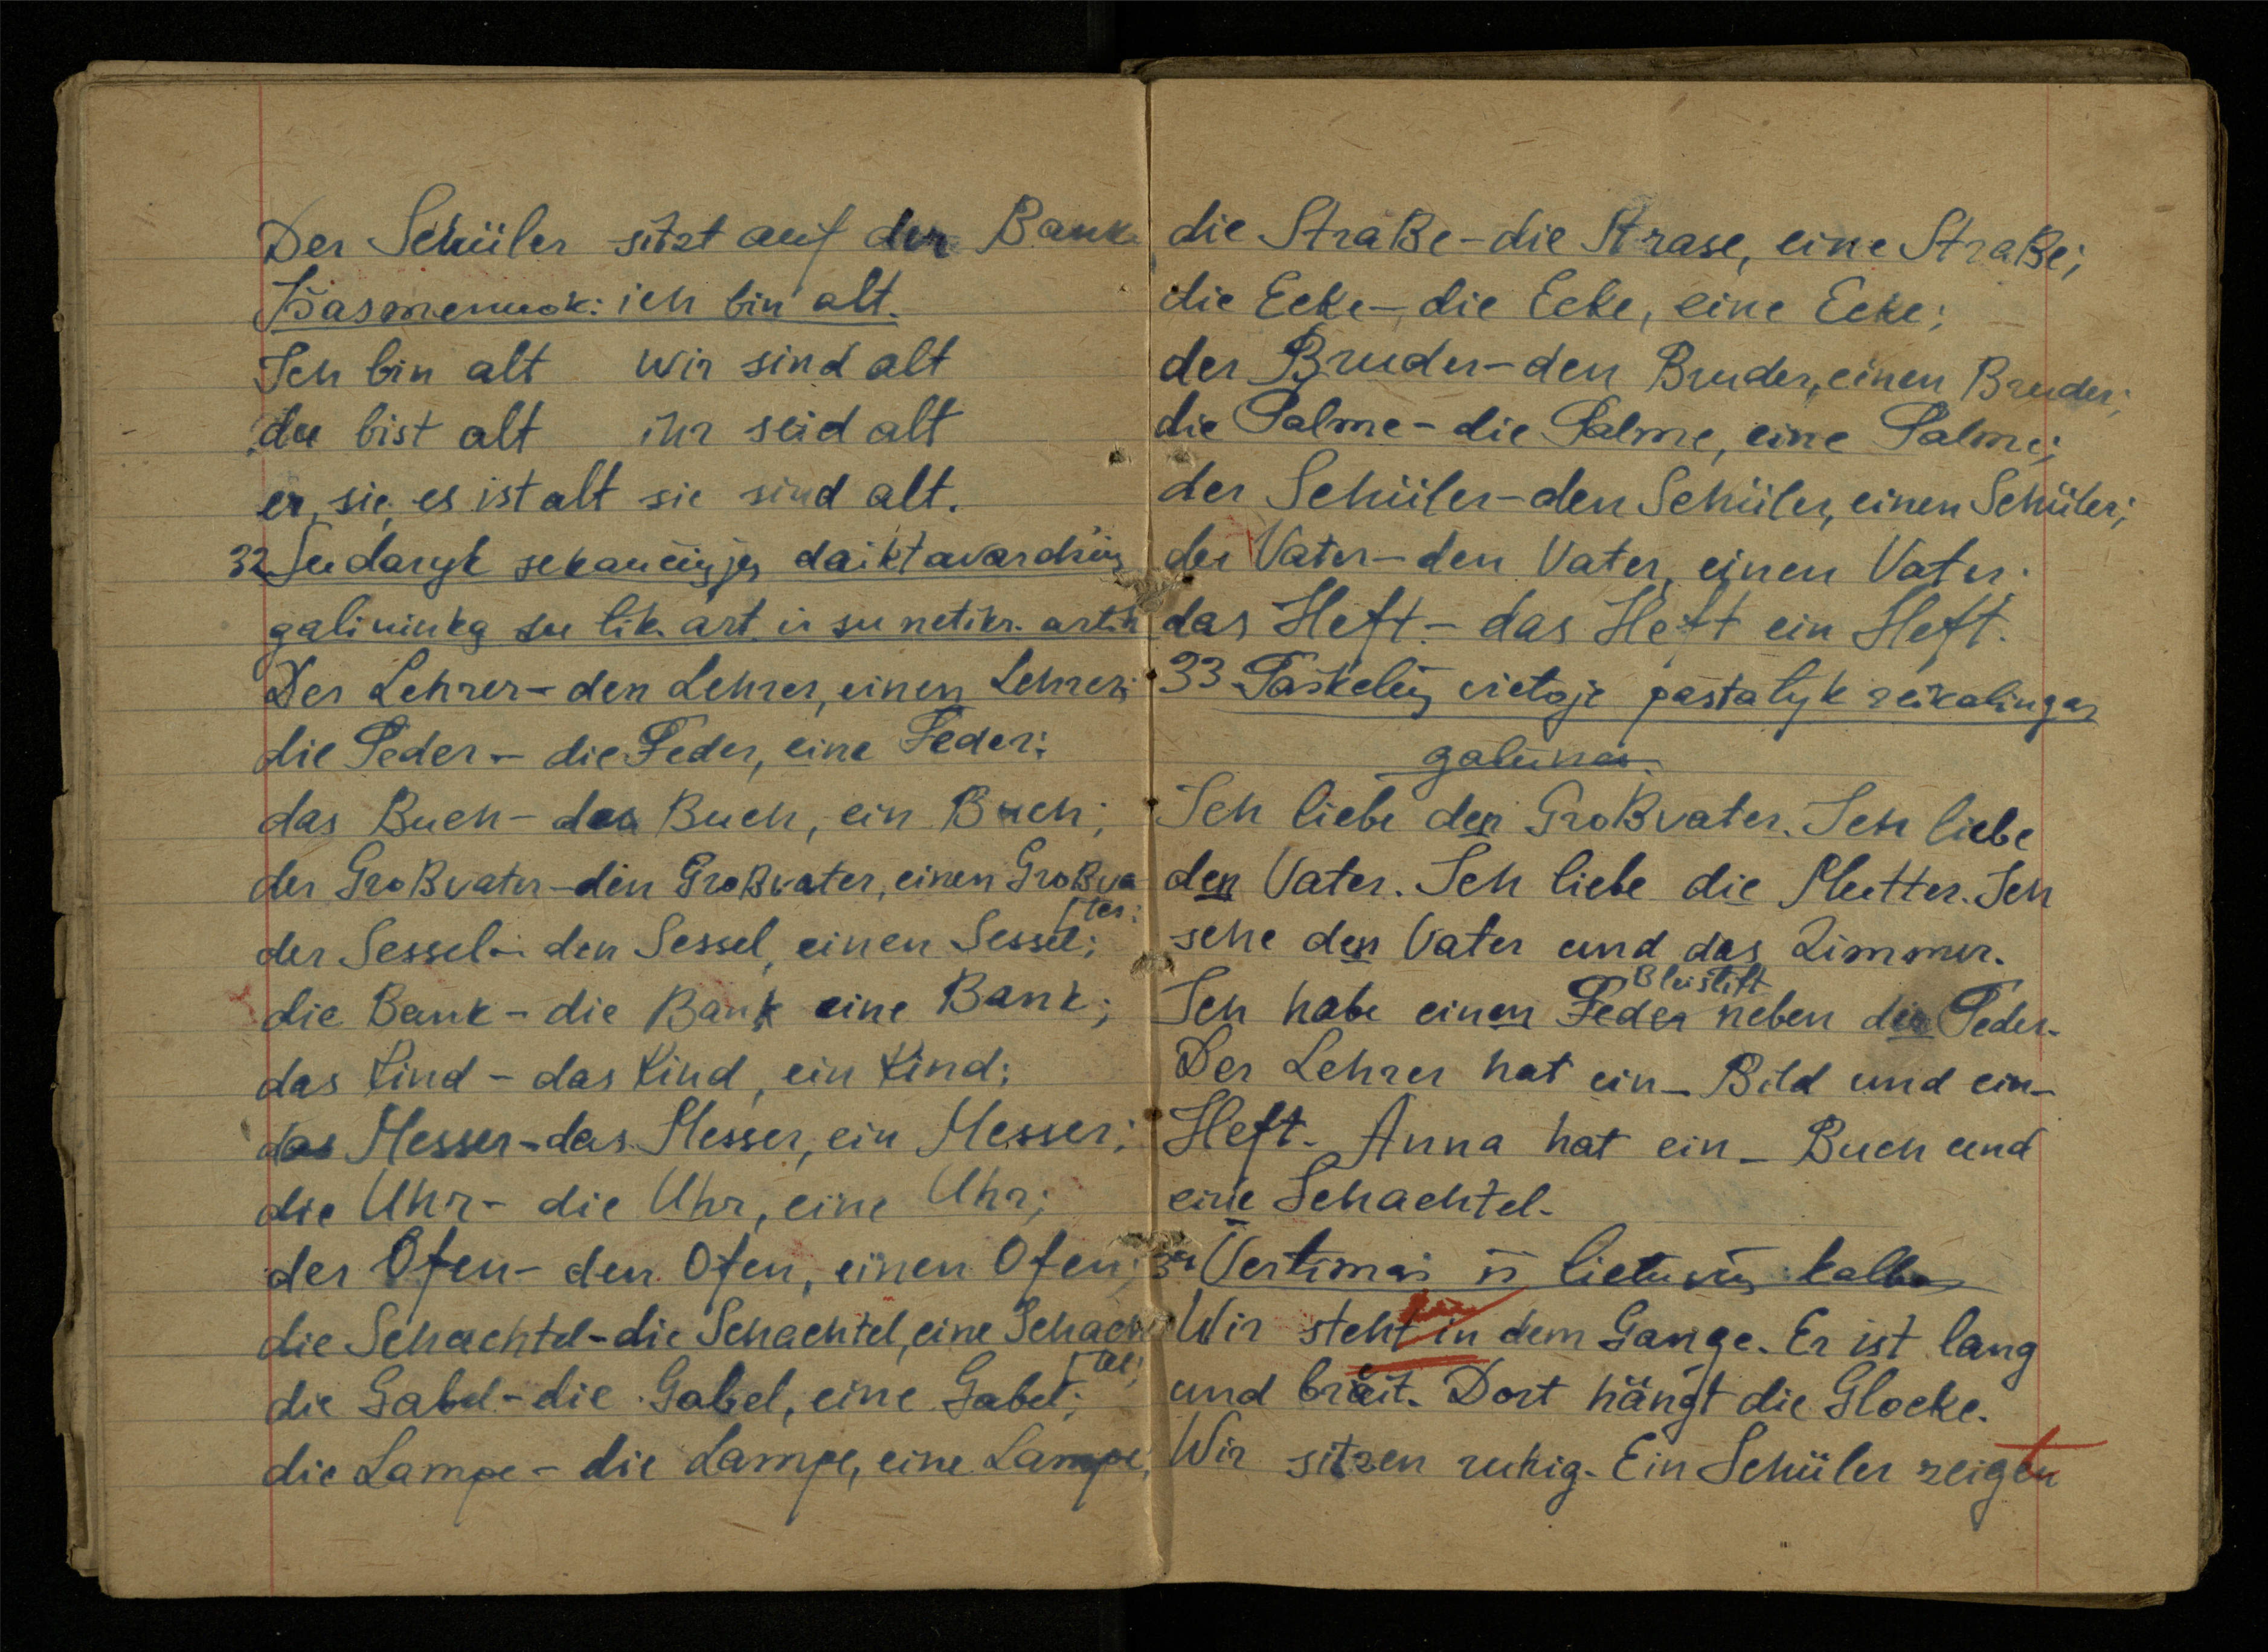 Der Schüler sitzt auf der Bank
Išasmenuok: ich bin alt.
Ich bin alt wir sind alt
du bist alt ihr seid alt
er, sie, es ist alt sie sind alt.
32 Sudaryk sekančiųjų daiktavardžių
galininką su tik. art. ir su netikr. artik
Der Lehrer – den Lehrer, einen Lehrer;
die Feder – die Feder, eine Feder;
das Buch – das Buch, ein Buch;
der Großvater – den Großvater, einen Großva-
ter;
der Sessel – den Sessel, einen Sessel;
die Bank – die Bank eine Bank;
das Kind – das Kind, ein Kind;
das Messer – das Messer, ein Messer;
die Uhr – die Uhr, eine Uhr;
der Ofen – den Ofen, einen Ofen;
die Schachtel – die Schachtel, eine Schach
tel;
die Gabel – die Gabel, eine Gabel;
die Lampe – die Lampe, eine Lampe;
die Straße – die Strase, eine Straße;
die Ecke – die Ecke, eine Ecke;
der Bruder – den Bruder, einen Bruder;
die Palme – die Palme, eine Palme;
der Schüler – den Schüler, einen Schüler;
der Vater – den Vater, einen Vater.
das Heft – das Heft ein Heft.
33 Taškelių vietoje pastatyk reikalingas
galūnes.
Ich liebe den Großvater. Ich liebe
den Vater. Ich liebe die Mutter. Ich
sehe den Vater und das Zimmer.
Bleistift
Ich habe einen Feder neben der Feder.
Der Lehrer hat ein – Bild und ein –
Heft. Anna hat ein – Buch und
eine Schachtel.
34 Vertimas iš lietuvių kalbos
Wir steht in dem Gange. Er ist lang
und breit. Dort hängt die Glocke.
Wir sitzen ruhig. Ein Schüler zeigt